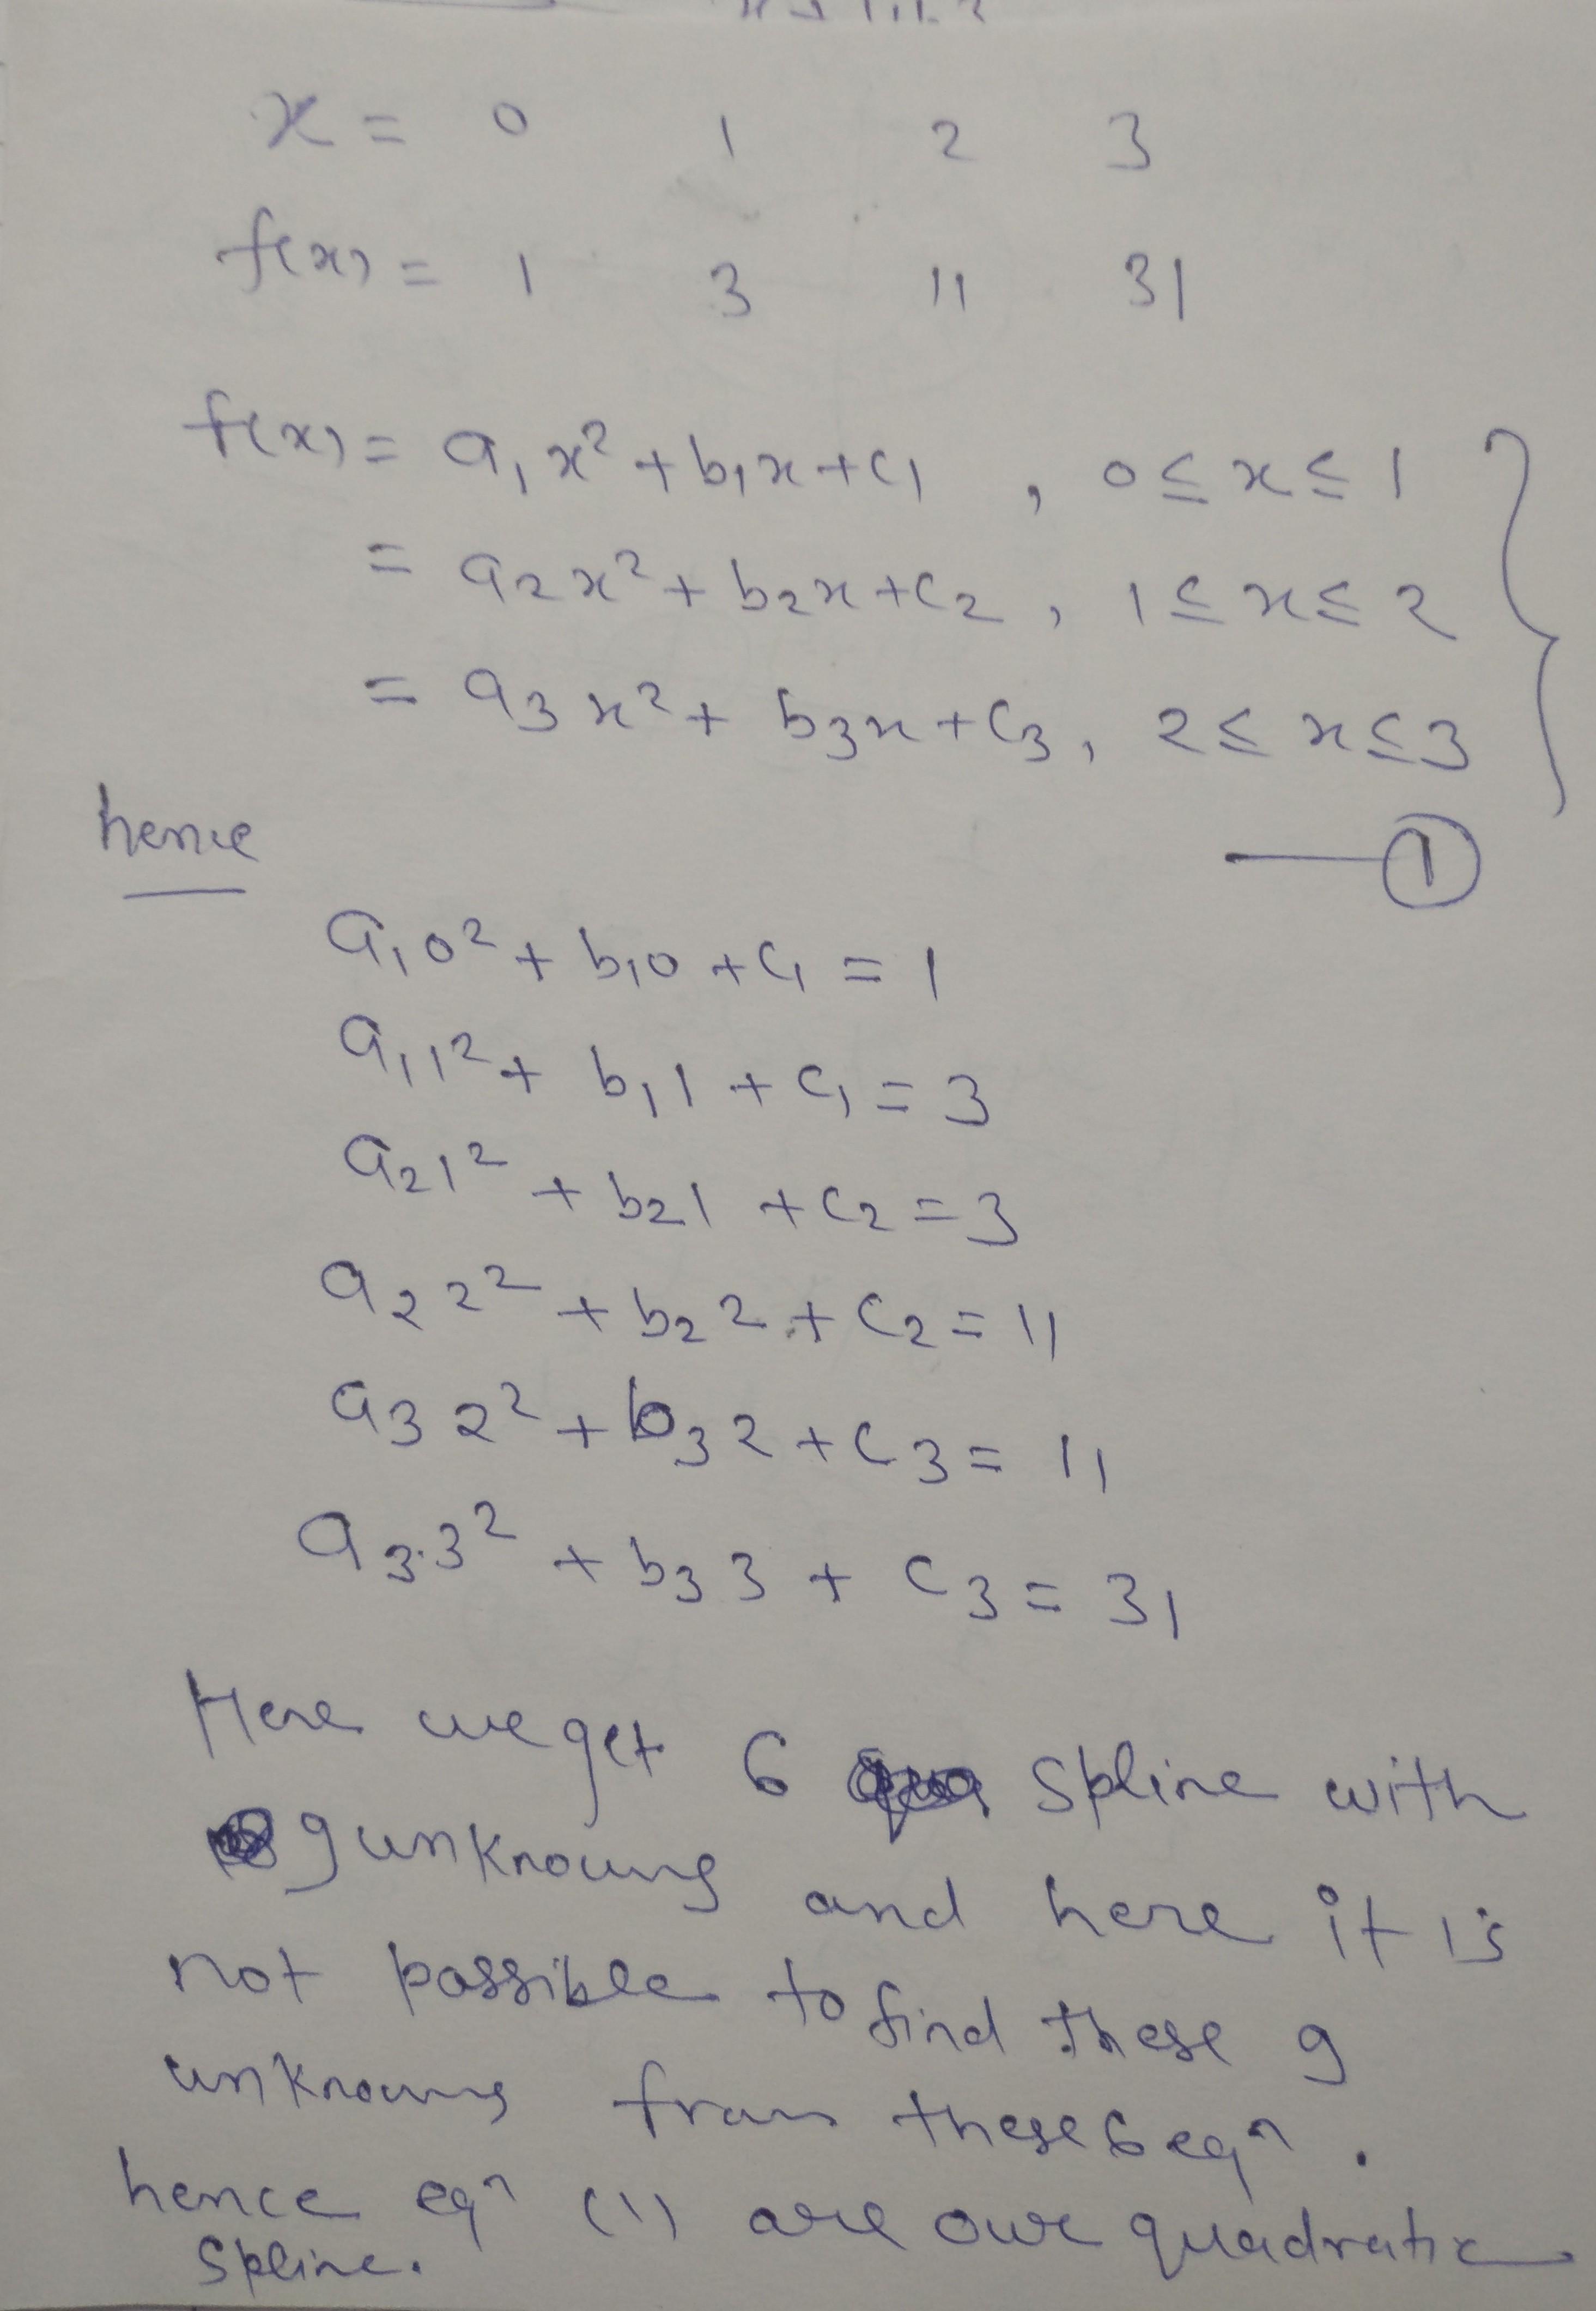 x = 0 1 2 3
f(x) = 1 3 11 31
f(x) = a₁x² + b₁x + c₁ , 0 ≤ x ≤ 1
= a₂x² + b₂x + c₂ , 1 ≤ x ≤ 2
= a₃x² + b₃x + c₃ , 2 ≤ x ≤ 3
hence — ①
a₁0² + b₁0 + c₁ = 1
a₁1² + b₁1 + c₁ = 3
a₂1² + b₂1 + c₂ = 3
a₂2² + b₂2 + c₂ = 11
a₃2² + b₃2 + c₃ = 11
a₃.3² + b₃3 + c₃ = 31
Here we get 6 spline with
9 unknowns and here it is
not possible to find these 9
unknowns from these 6 eqⁿ.
hence eqⁿ (1) are our quadratic
spline.